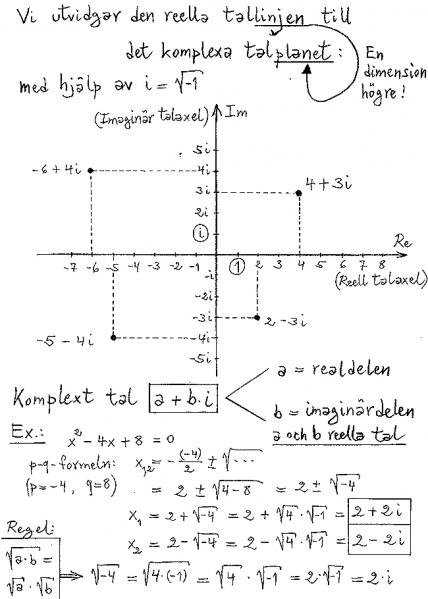 Vi utvidgar den reella tallinjen till
det komplexa talplanet:
En
dimension
högre!
med hjälp av i = √-1
(Imaginär talaxel)
Im
5i
-6+4i
4i
3i
4+3i
2i
i
Re
-7 -6 -5 -4 -3 -2 -1
1 2 3 4 5 6 7 8
(Reell talaxel)
-i
-2i
-3i
2-3i
-5-4i
-4i
-5i
a = realdelen
Komplext tal a+b·i
b = imaginärdelen
a och b reella tal
Ex.: x² - 4x + 8 = 0
p-q-formeln: x₁,₂ = -(-4)/2 ± √...
(p=-4, q=8) = 2 ± √4-8 = 2 ± √-4
x₁ = 2+√-4 = 2 + √4 · √-1 = 2+2i
x₂ = 2-√-4 = 2 - √4 · √-1 = 2-2i
Regel:
√a·b =
√a · √b
⟹ √-4 = √4·(-1) = √4 · √-1 = 2·√-1 = 2·i